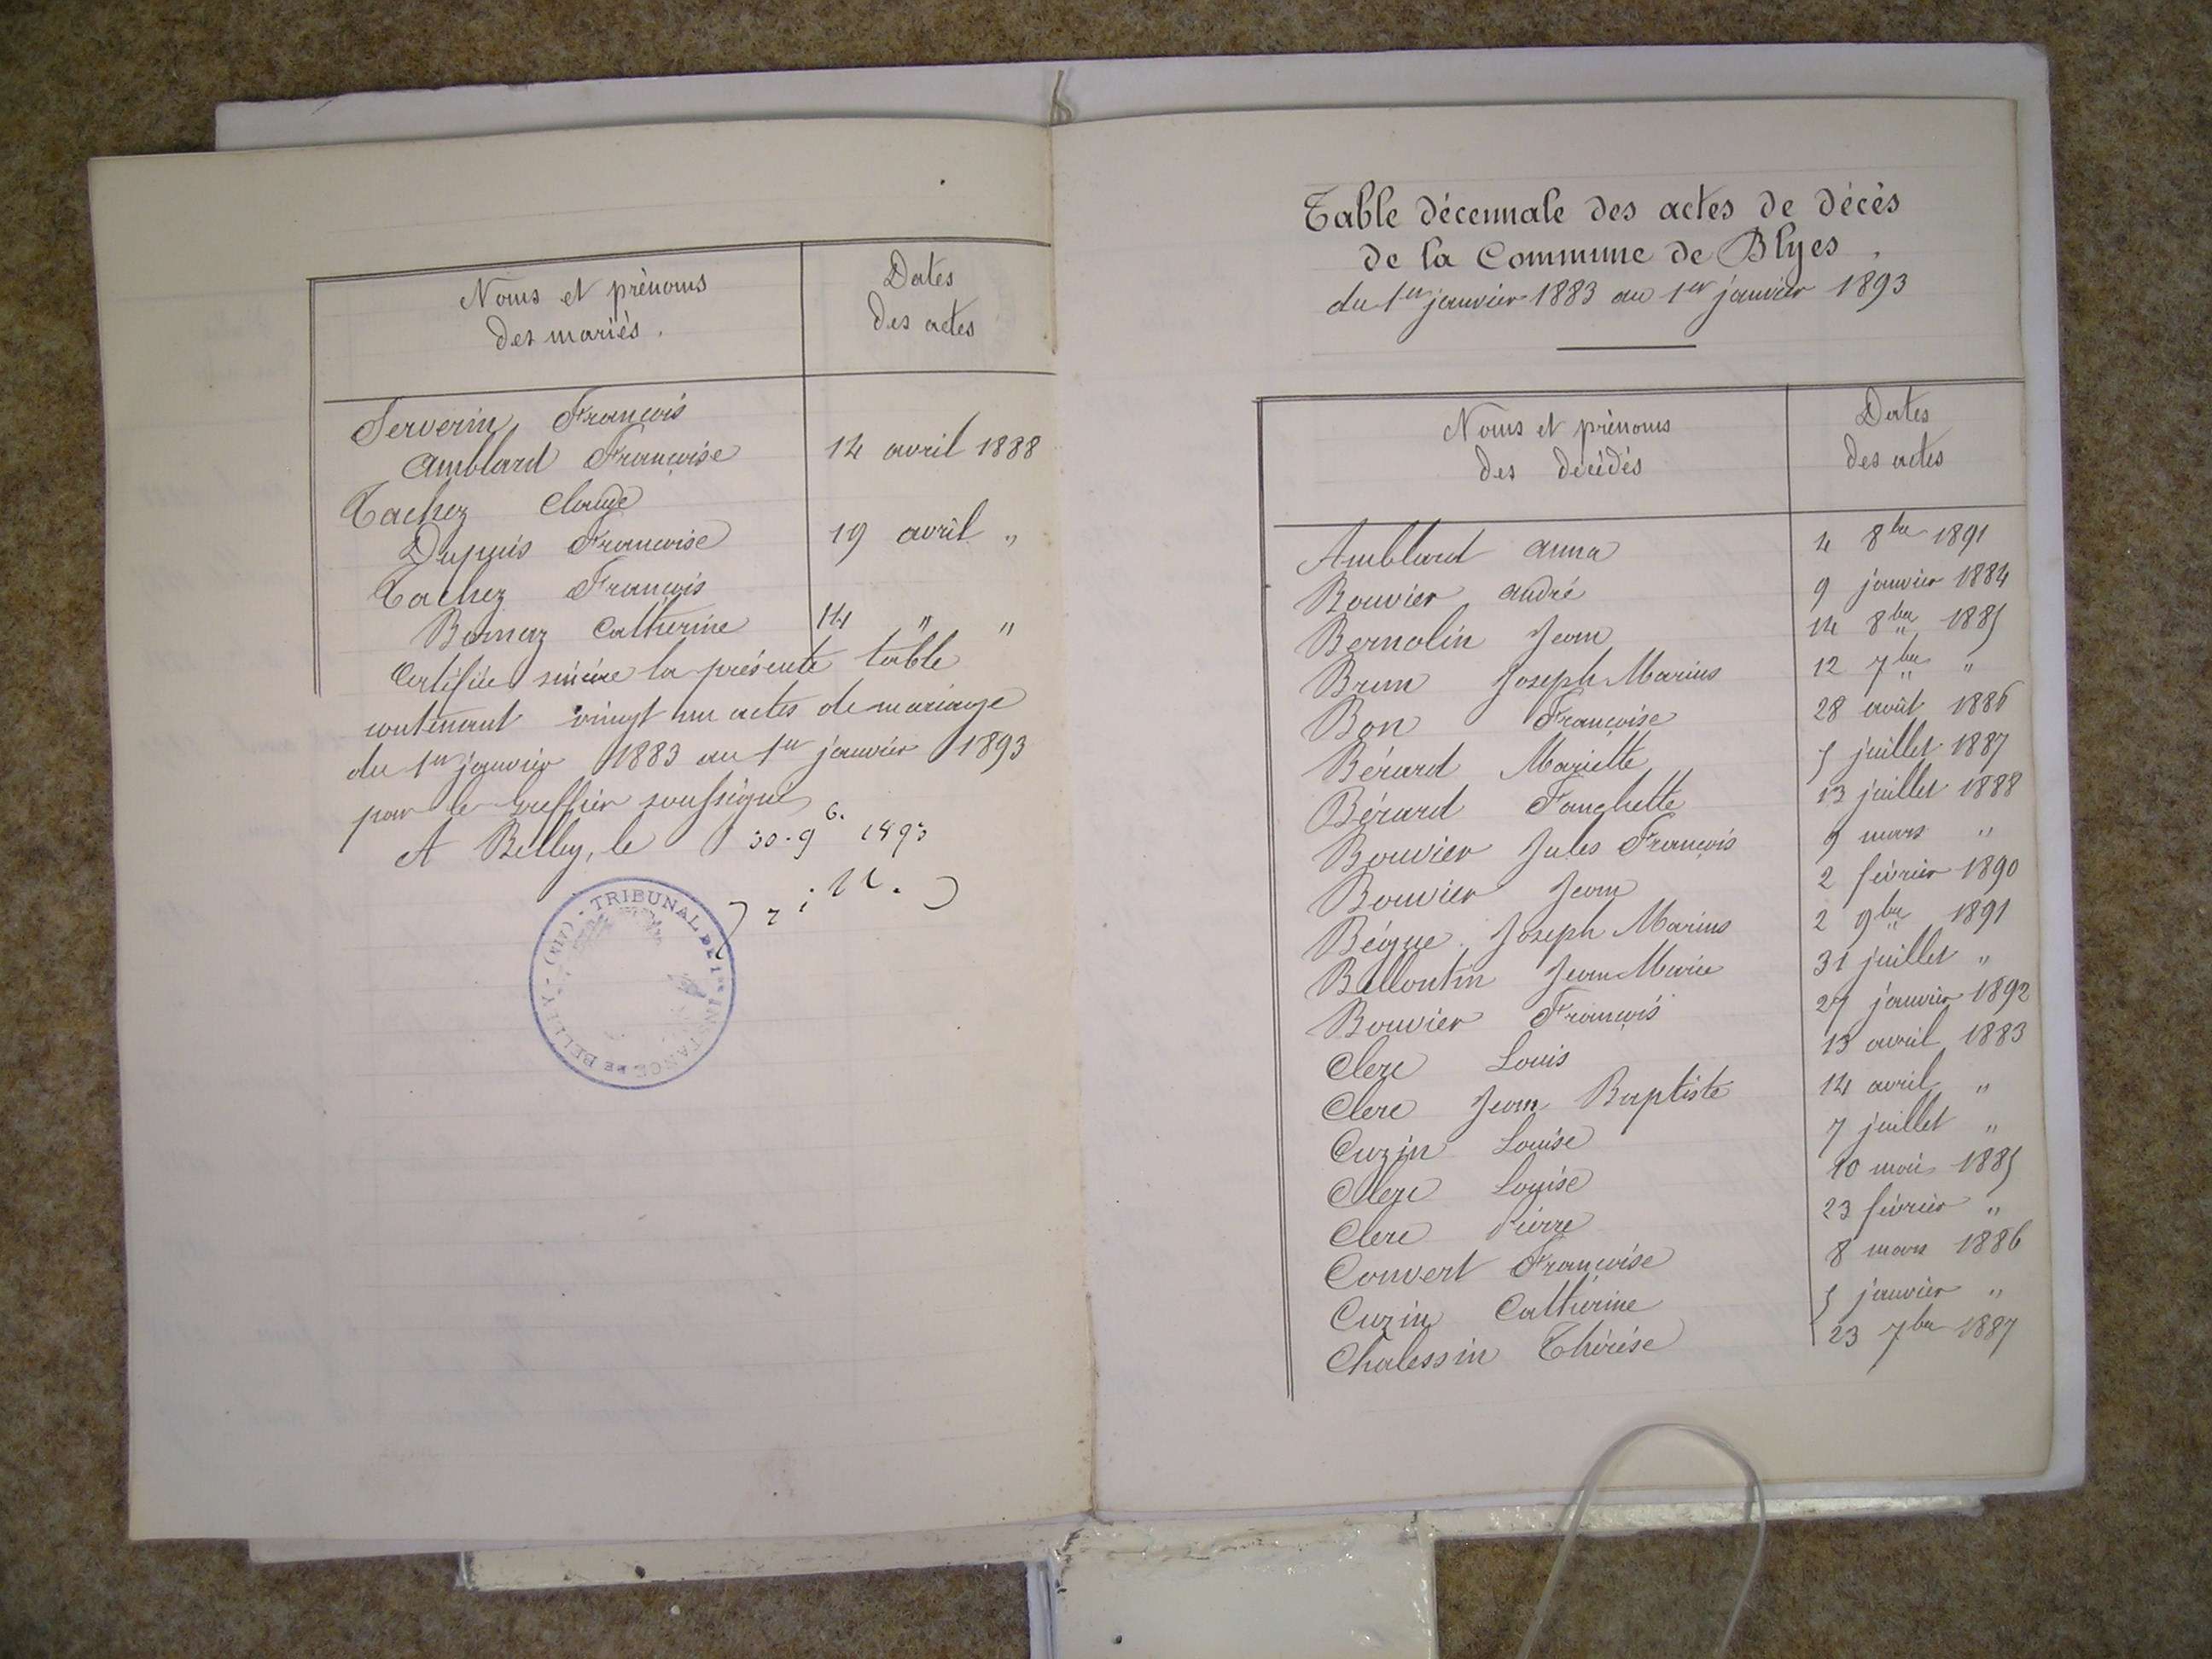 Noms et prénoms
des mariés.
Dates
des actes
Serverin François
Amblard Françoise
14 avril 1888
Tachez Claude
Dupuis Francoise
19 avril "
Tachez François
Bornaz Catherine
14 " "
Certifiée sincère la présente table
contenant vingt un actes de mariage
du 1er janvier 1883 au 1er janvier 1893
par le greffier soussigné
A Belley, le 30 - 9b. 1893
TRIBUNAL DE 1re INSTANCE DE BELLEY - (AIN) -
Table décennale des actes de décès
de la Commune de Blyes.
du 1er janvier 1883 au 1er janvier 1893
Noms et prénoms
des décédés
Dates
des actes
Amblard Anna 4 8bre 1891
Bouvier André 9 janvier 1884
Bernolin Jean 14 8bre 1885
Brun Joseph Marius 12 7bre "
Bon Françoise 28 août 1886
Bérard Mariette 5 juillet 1887
Bérard Fanchette 13 juillet 1888
Bouvier Jules François 9 mars "
Bouvier Jean 2 février 1890
Bégue Joseph Marius 2 9bre 1891
Bellontin Jean Marie 31 juillet "
Bouvier François 27 janvier 1892
Clerc Louis 13 avril 1883
Clerc Jean Baptiste 14 avril "
Cuzin Louise 7 juillet "
Clerc Louise 10 mai 1885
Clerc Pierre 23 février "
Convert Françoise 8 mars 1886
Cuzin Catherine 5 janvier "
Chalessin Thérèse 23 7bre 1887